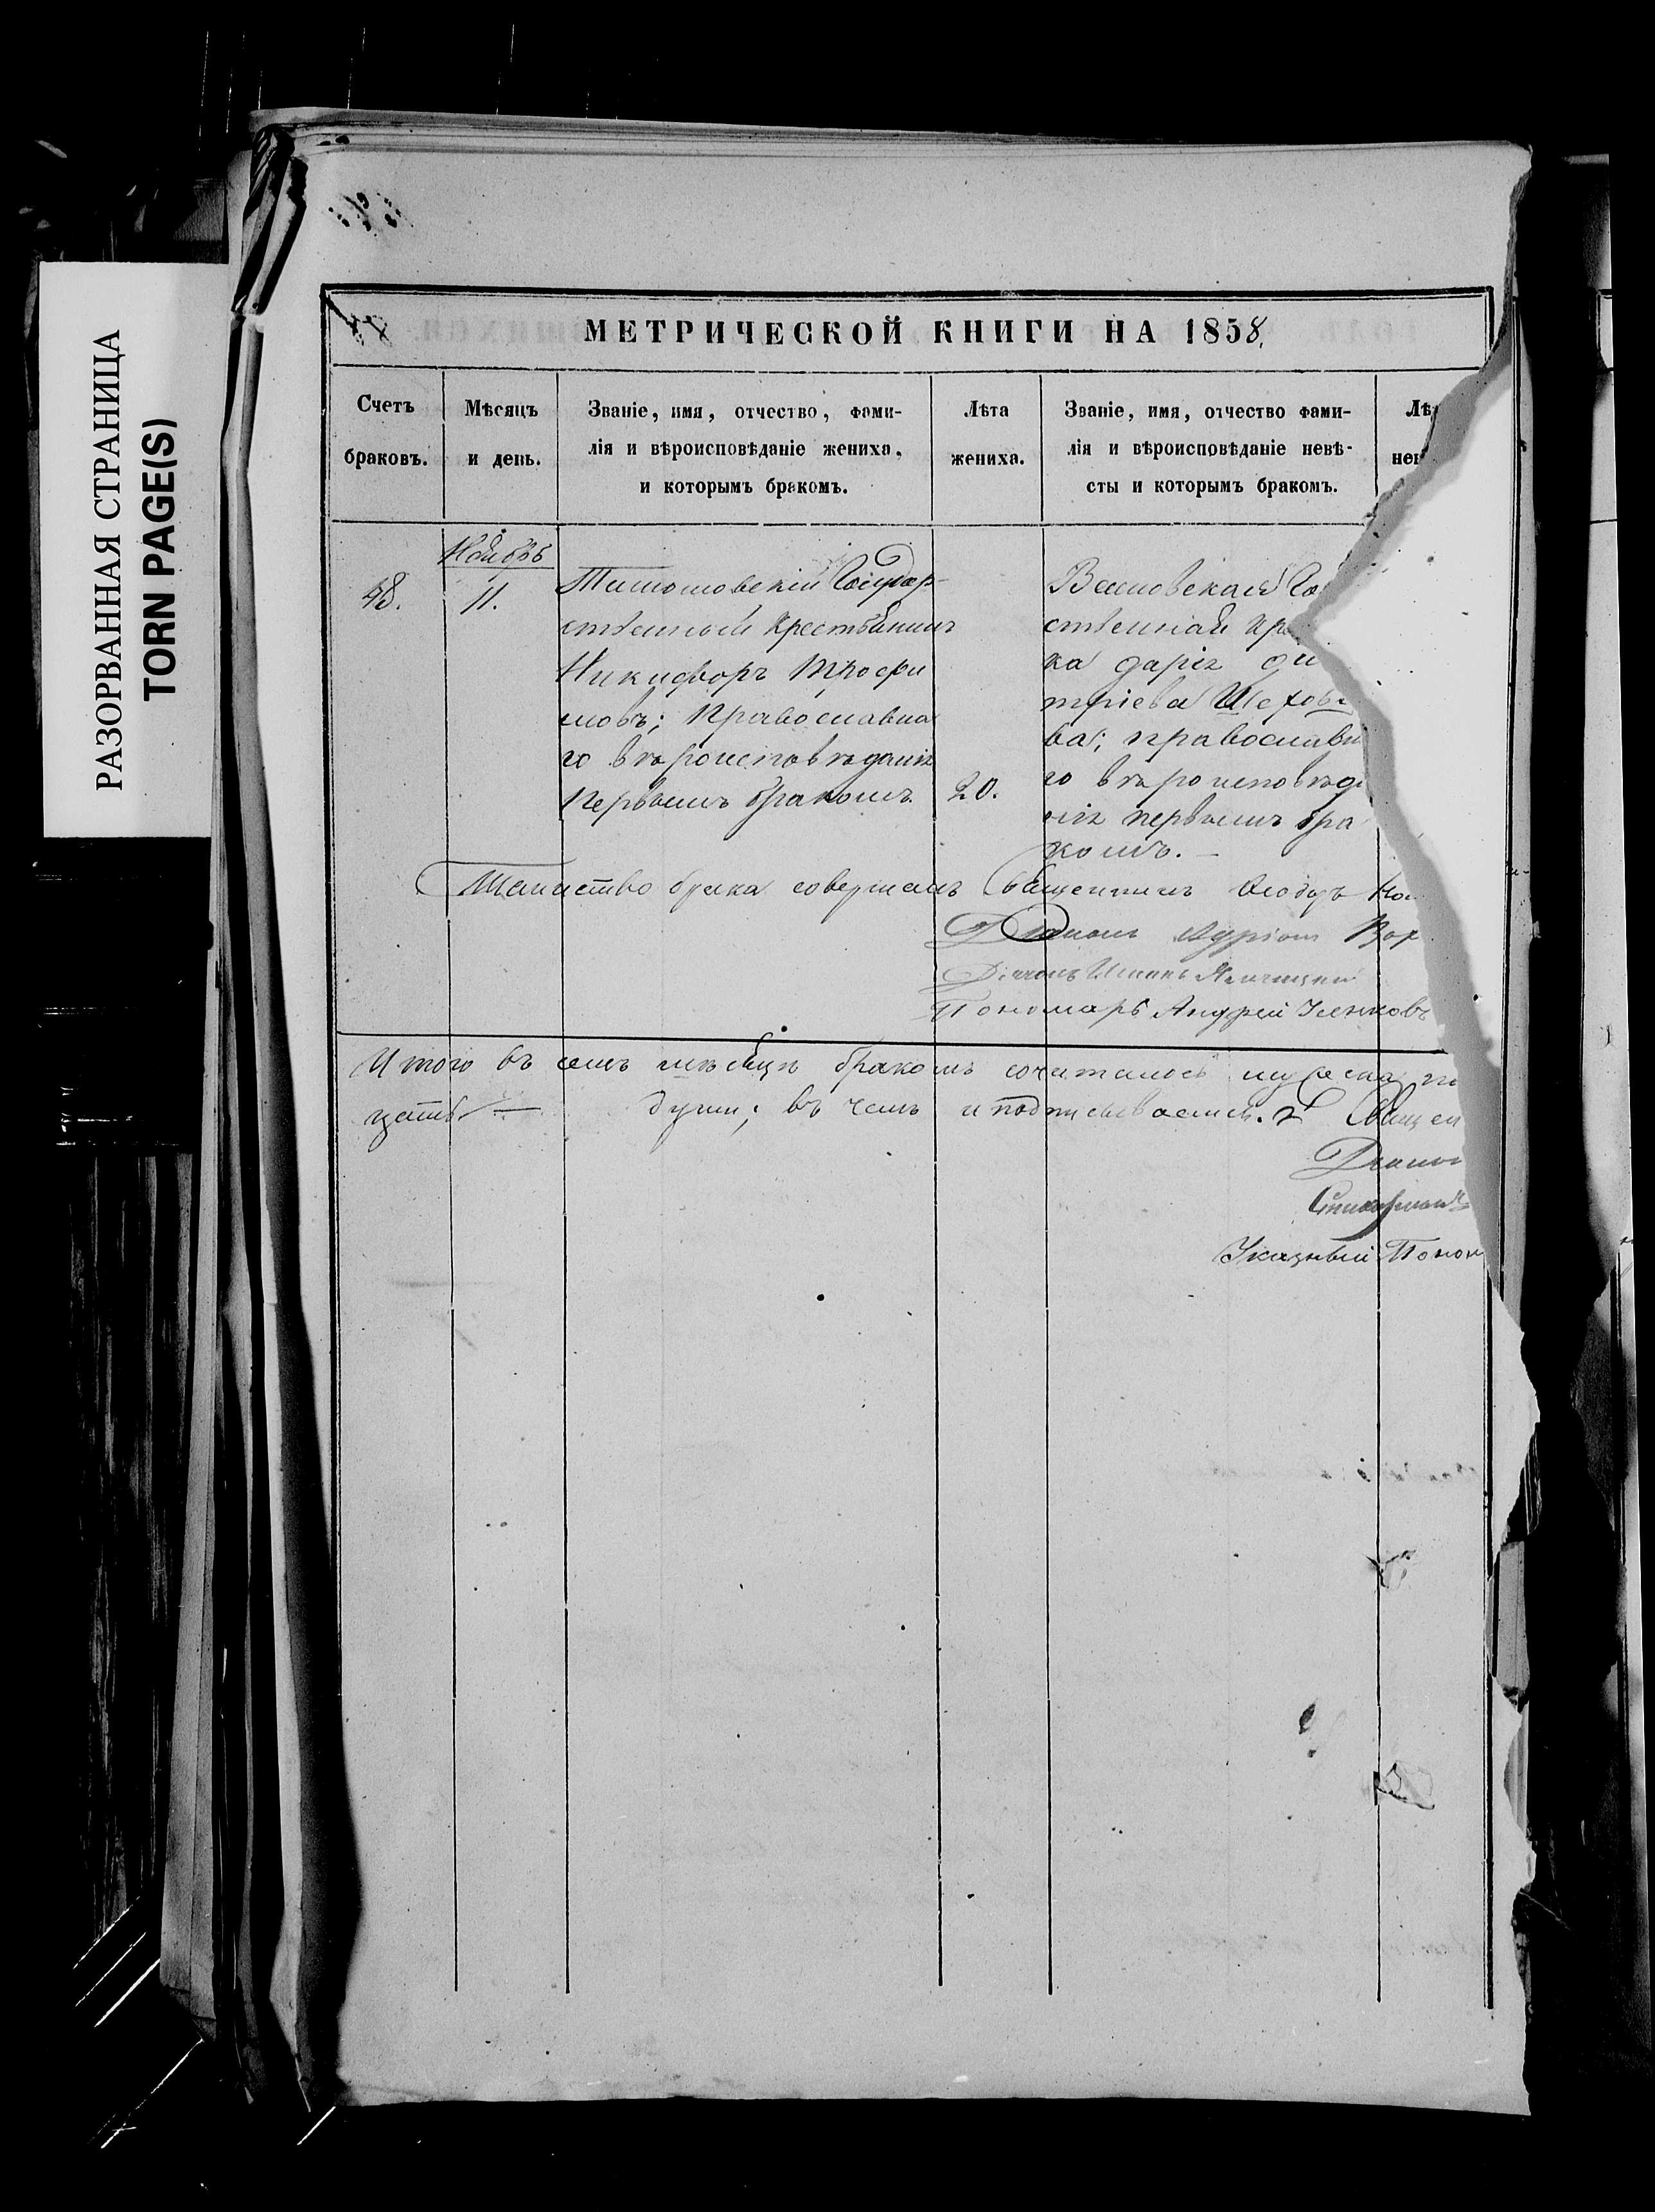 РАЗОРВАННАЯ СТРАНИЦА
TORN PAGE(S)
МЕТРИЧЕСКОЙ КНИГИ НА 1858.
Счетъ браковъ.
Мѣсяцъ и день.
Званіе, имя, отчество, фами-
лія и вѣроисповѣданіе жениха,
и которымъ бракомъ.
Лѣта жениха.
Званіе, имя, отчество фами-
лія и вѣроисповѣданіе невѣ-
сты и которымъ бракомъ.
Лѣ
нев
Ноябрь
48.
11.
Государ-
ственный Крестьянинъ
Никифоръ Трофи
мовъ; Православна
го вѣроисповѣданія
Первымъ бракомъ.
20.
ственная кре
ка Дарія Ди
тріева Шехов
ва; православн
го вѣроисповѣд
нія первымъ бра
комъ. —
Таинство брака совершалъ Священникъ Ѳеодоръ
Діаконъ
Пономарь Андрей
Итого въ семъ мѣсяцѣ бракомъ сочеталось мужеска
цать — души; въ чемъ и подписываемся. Священ
Діакон
Указный Поном